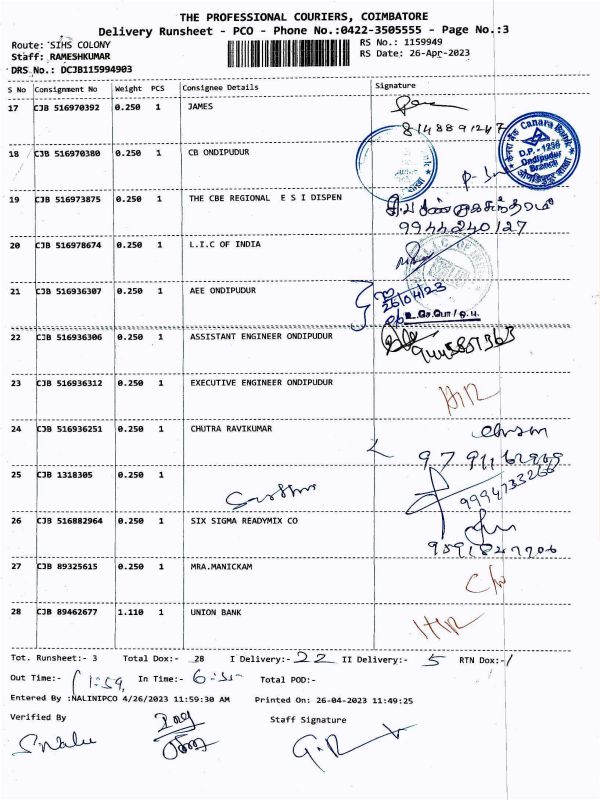 THE PROFESSIONAL COURIERS, COIMBATORE
Delivery Runsheet - PCO - Phone No.:0422-3505555 - Page No.:3
Route: SIHS COLONY RS No.: 1159949
Staff: RAMESHKUMAR RS Date: 26-Apr-2023
DRS No.: DCJB115994903
S No Consignment No Weight PCS Consignee Details Signature
17 CJB 516970392 0.250 1 JAMES
8148891247
Canara Bank
D.P. - 1256
Ondipudur
Branch
18 CJB 516970380 0.250 1 CB ONDIPUDUR
19 CJB 516973875 0.250 1 THE CBE REGIONAL E S I DISPEN
9944240127
20 CJB 516978674 0.250 1 L.I.C OF INDIA
21 CJB 516936307 0.250 1 AEE ONDIPUDUR
25/04/23
22 CJB 516936306 0.250 1 ASSISTANT ENGINEER ONDIPUDUR
23 CJB 516936312 0.250 1 EXECUTIVE ENGINEER ONDIPUDUR
24 CJB 516936251 0.250 1 CHUTRA RAVIKUMAR
25 CJB 1318305 0.250 1
9994733266
26 CJB 516882964 0.250 1 SIX SIGMA READYMIX CO
27 CJB 89325615 0.250 1 MRA.MANICKAM
28 CJB 89462677 1.110 1 UNION BANK
Tot. Runsheet:- 3 Total Dox:- 28 I Delivery:- 22 II Delivery:- 5 RTN Dox:- 1
Out Time:- 11:59, In Time:- Total POD:-
Entered By :NALINIPCO 4/26/2023 11:59:30 AM Printed On: 26-04-2023 11:49:25
Verified By Staff Signature